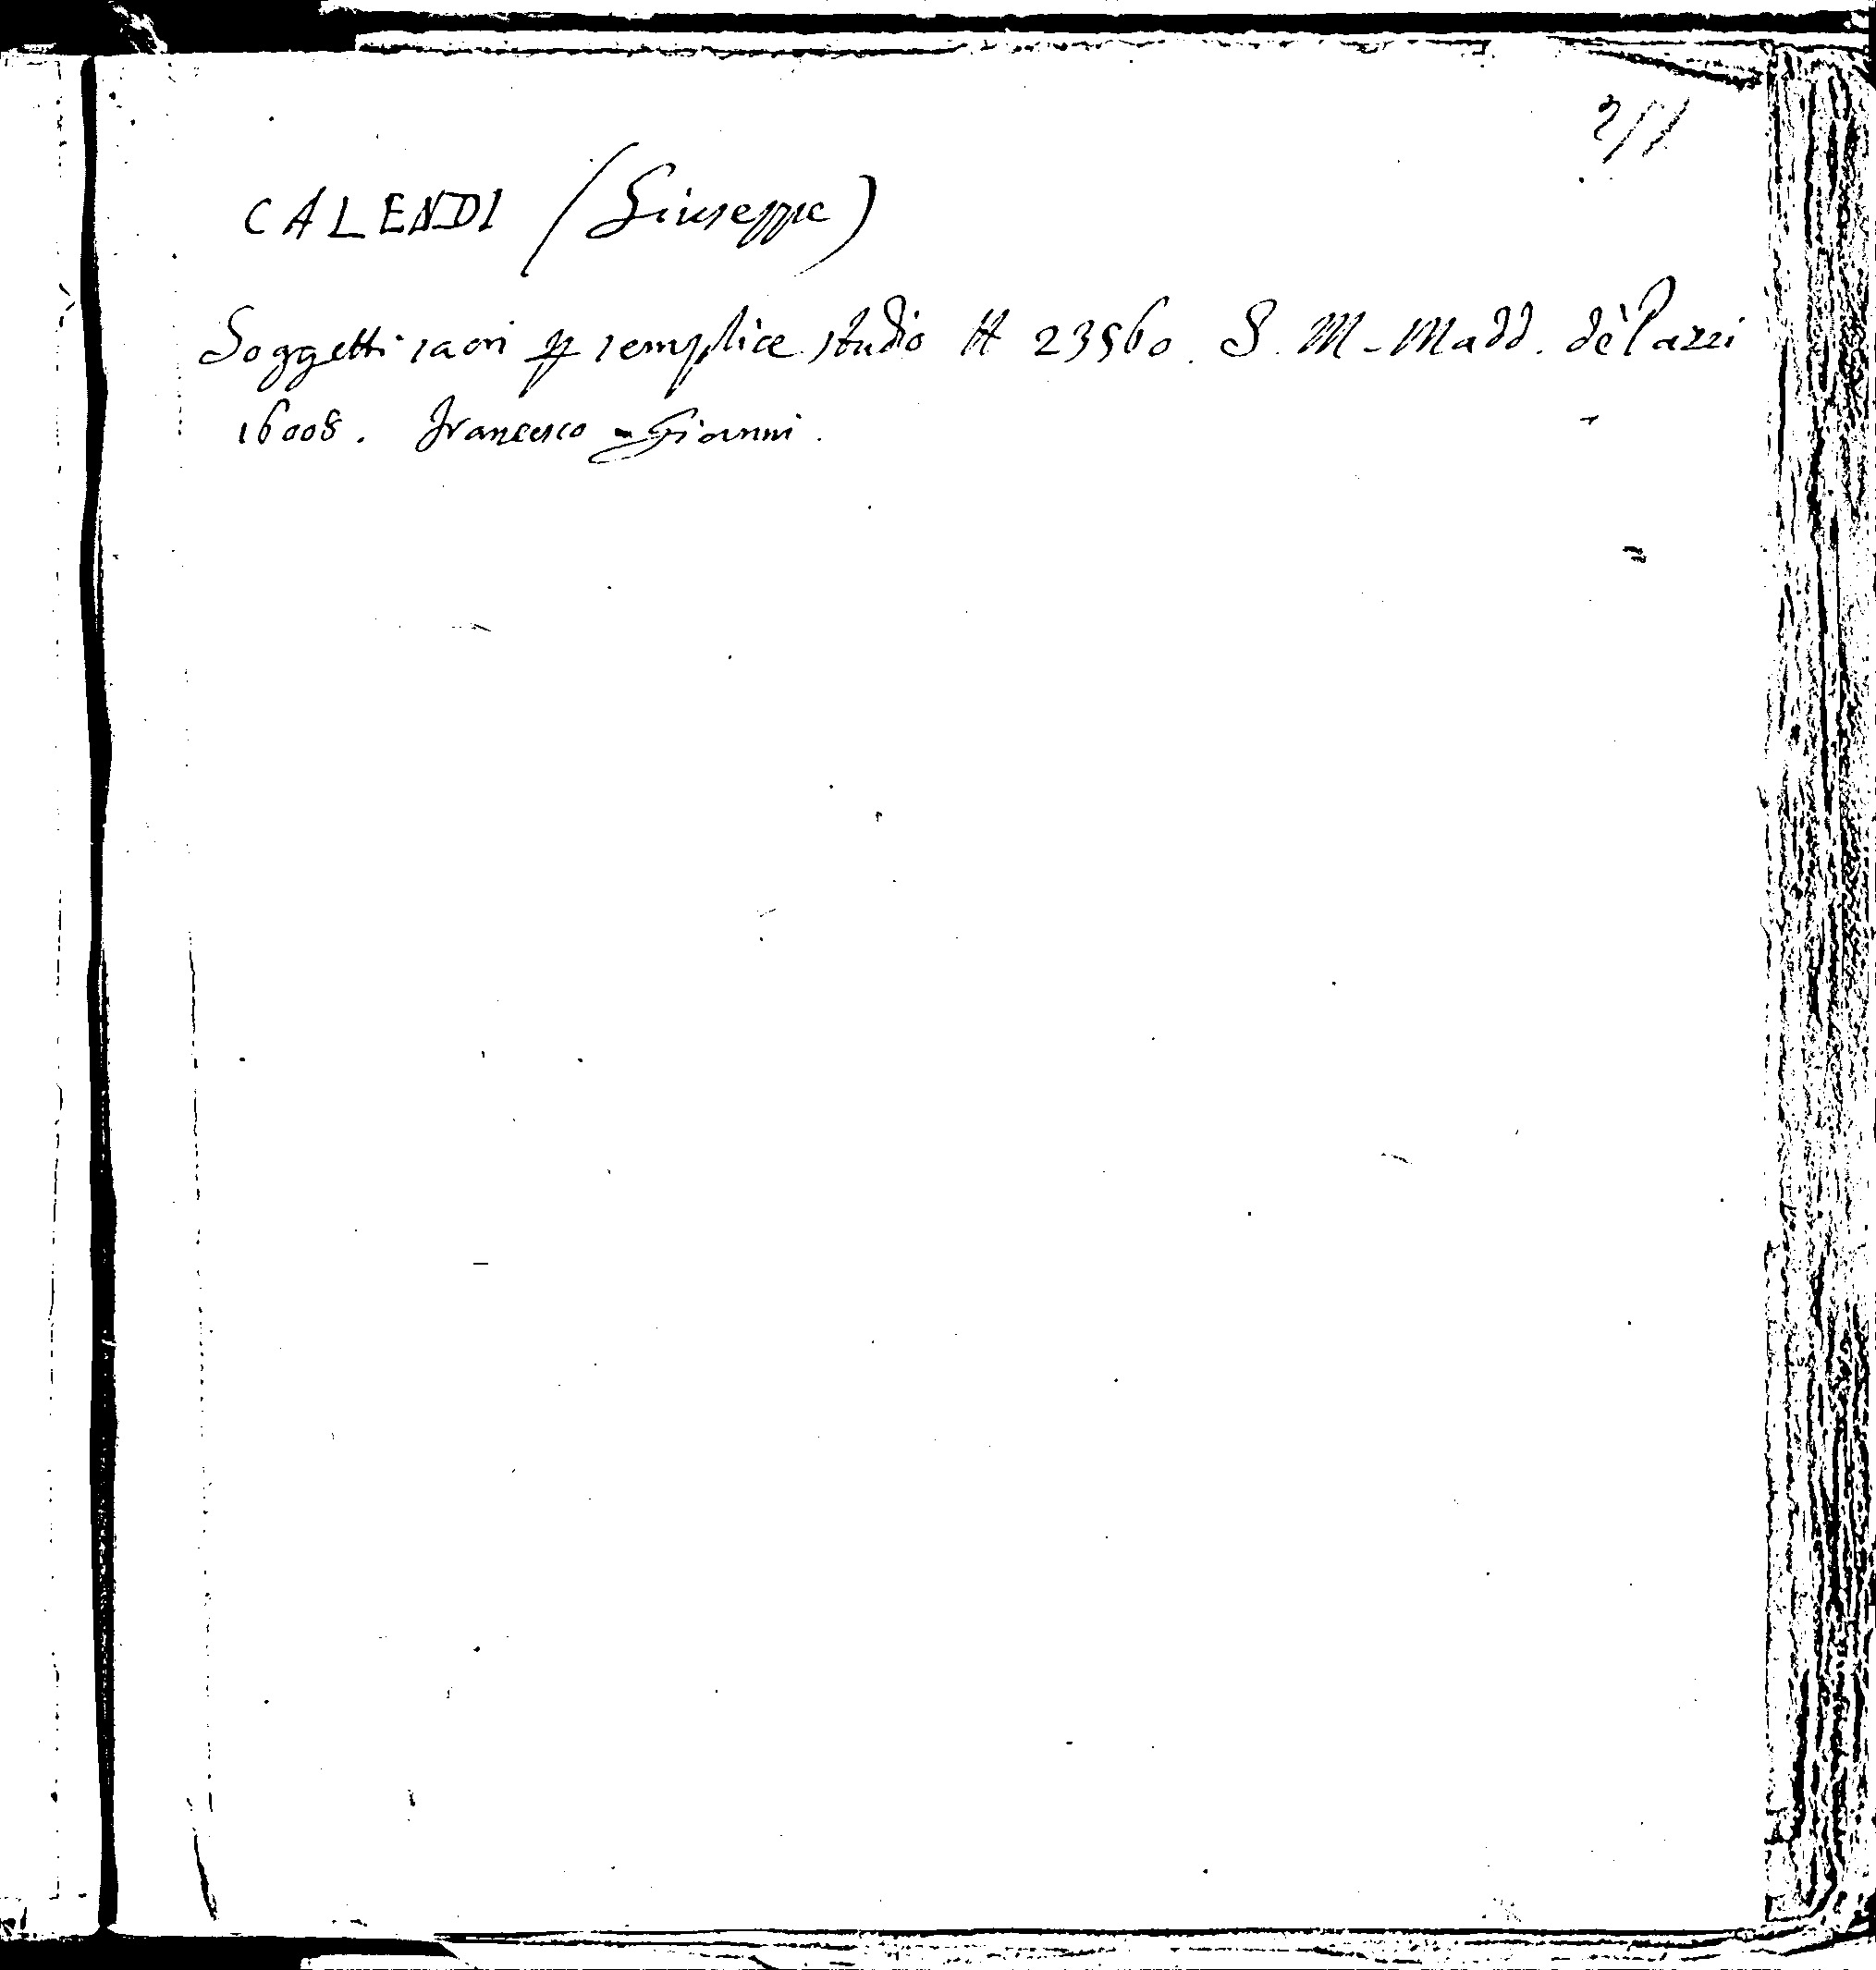 CALENDI (Giuseppe)
Soggetti sacri p semplice studio H 23560. S. M. Madd. de' Pazzi
16008. Francesco Gianni.